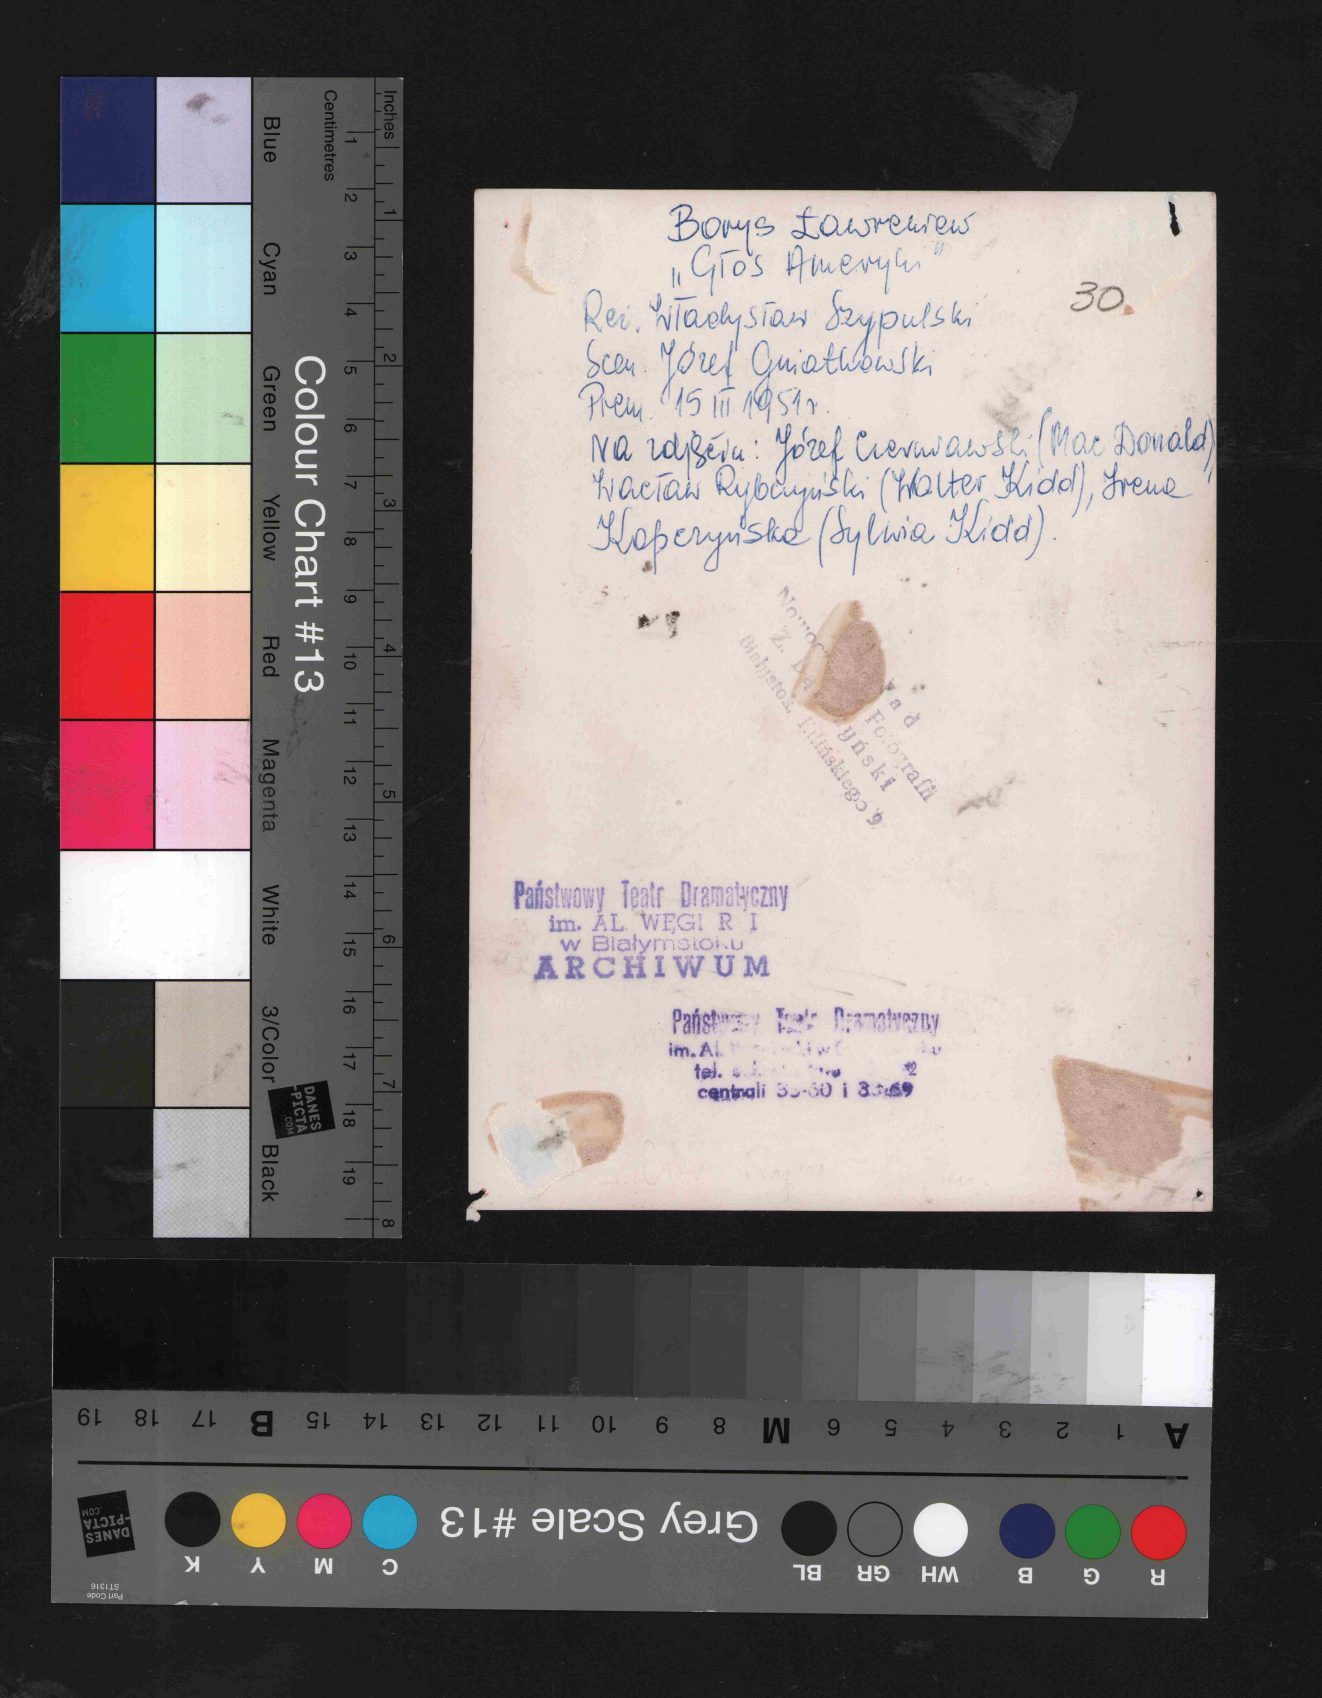 Borys Ławreniew
„Głos Ameryki"
Reż. Władysław Szypulski
Scen. Józef Gniatkowski
Prem. 15 III 1951 r.
Na zdjęciu: Józef Czerniawski (Mac Donald),
Wacław Rybczyński (Walter Kidd), Irena
Kapczyńska (Sylwia Kidd).
30.
Fotografii
Białystok, Kilińskiego 9
Państwowy Teatr Dramatyczny
im. AL. WĘGI R I
w Białymstoku
ARCHIWUM
Państwowy Teatr Dramatyczny
im. Al.
tel.
centrali
Inches 1 2 3 4 5 6 7 8
Centimetres 1 2 3 4 5 6 7 8 9 10 11 12 13 14 15 16 17 18 19
Colour Chart #13
Blue
Cyan
Green
Yellow
Red
Magenta
White
3/Color
Black
DANES
-PICTA
.COM
A 1 2 3 4 5 6 M 8 9 10 11 12 13 14 15 B 17 18 19
Grey Scale #13
R G B WH GR BL C M Y K
DANES
-PICTA
.COM
Part Code
ST1316